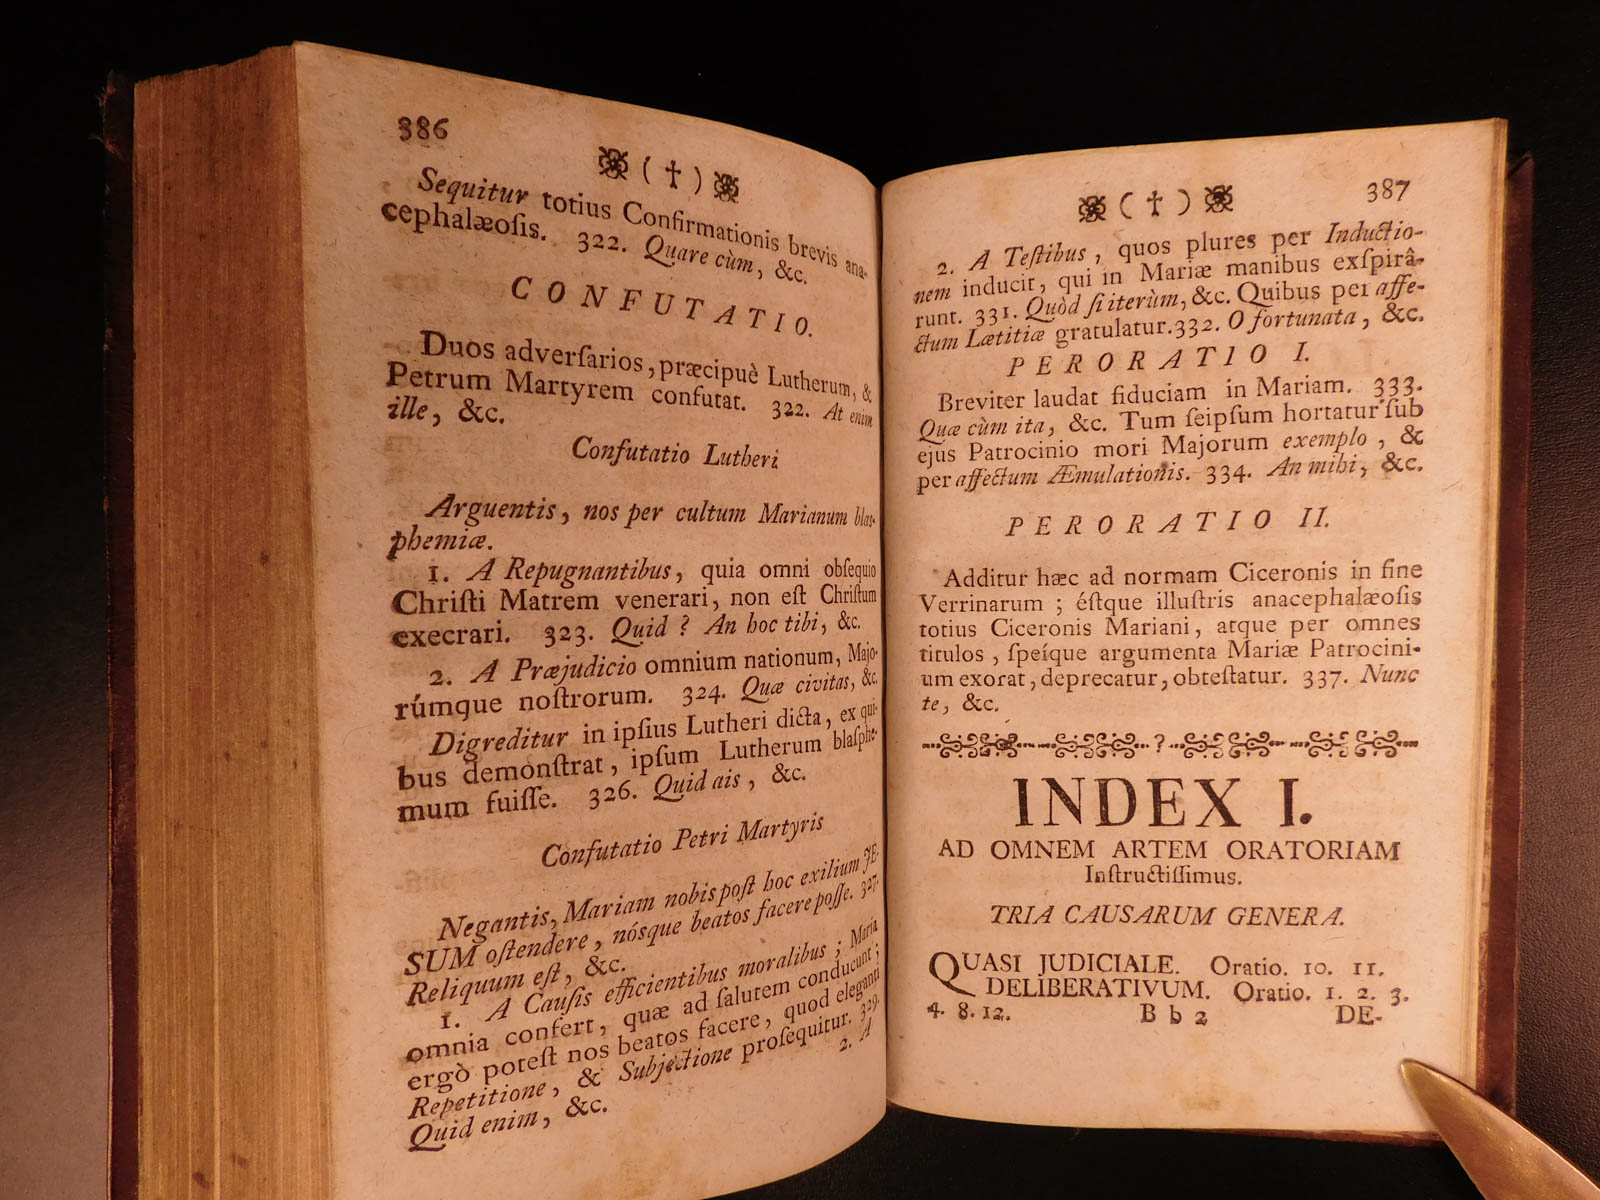 386
( † )
Sequitur totius Confirmationis brevis ana-
cephalæoſis. 322. Quare cùm, &c.
CONFUTATIO.
Duos adverſarios, præcipuè Lutherum, &
Petrum Martyrem confutat. 322. At enim
ille, &c.
Confutatio Lutheri
Arguentis, nos per cultum Marianum blas-
phemiæ.
1. A Repugnantibus, quia omni obſequio
Chriſti Matrem venerari, non eſt Chriſtum
execrari. 323. Quid? An hoc tibi, &c.
2. A Præjudicio omnium nationum, Majo-
rúmque noſtrorum. 324. Quæ civitas, &c.
Digreditur in ipſius Lutheri dicta, ex qui-
bus demonſtrat, ipſum Lutherum blaſphe-
mum fuiſſe. 326. Quid ais, &c.
Confutatio Petri Martyris
Negantis, Mariam nobis poſt hoc exilium JE-
SUM oſtendere, nósque beatos facere poſſe. 327.
Reliquum eſt, &c.
1. A Cauſis efficientibus moralibus; Maria
omnia confert, quæ ad ſalutem conducunt;
ergò poteſt nos beatos facere, quod eleganti
Repetitione, & Subjectione proſequitur. 329.
Quid enim, &c. 2. A
( † ) 387
2. A Teſtibus, quos plures per Inductio-
nem inducit, qui in Mariæ manibus exſpirâ-
runt. 331. Quòd ſi iterùm, &c. Quibus per affe-
ctum Lætitiæ gratulatur. 332. O fortunata, &c.
PERORATIO I.
Breviter laudat fiduciam in Mariam. 333.
Quæ cùm ita, &c. Tum ſeipſum hortatur ſub
ejus Patrocinio mori Majorum exemplo, &
per affectum Æmulationis. 334. An mihi, &c.
PERORATIO II.
Additur hæc ad normam Ciceronis in fine
Verrinarum; éſtque illuſtris anacephalæoſis
totius Ciceronis Mariani, atque per omnes
titulos, ſpeíque argumenta Mariæ Patrocini-
um exorat, deprecatur, obteſtatur. 337. Nunc
te, &c.
INDEX I.
AD OMNEM ARTEM ORATORIAM
Inſtructiſſimus.
TRIA CAUSARUM GENERA.
QUASI JUDICIALE. Oratio. 10. 11.
DELIBERATIVUM. Oratio. 1. 2. 3.
4. 8. 12. Bb2 DE-